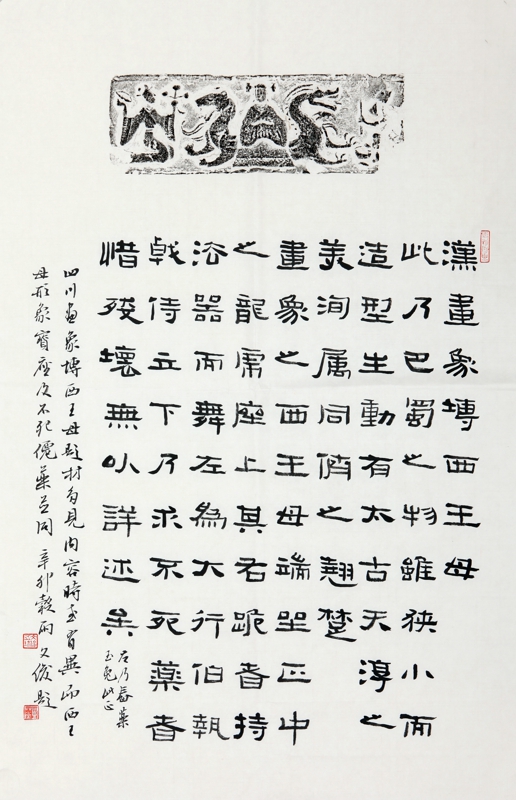 漢畫象塼西王母
此乃巴蜀之物雖狹小而
造型生動有太古天淳之
美洵属同俏之翹楚
畫象之西王母端坐正中
之龍虎座上其右跪者持
法器而舞左為大行伯執
戟侍立下乃求不死藥者
惜殘壞無以詳述矣
左乃舂藥
玉兔
四川畫象塼西王母題材多見内容時或有異而西王
母形象寶座及不死僊藥並同 辛卯穀雨文俊題